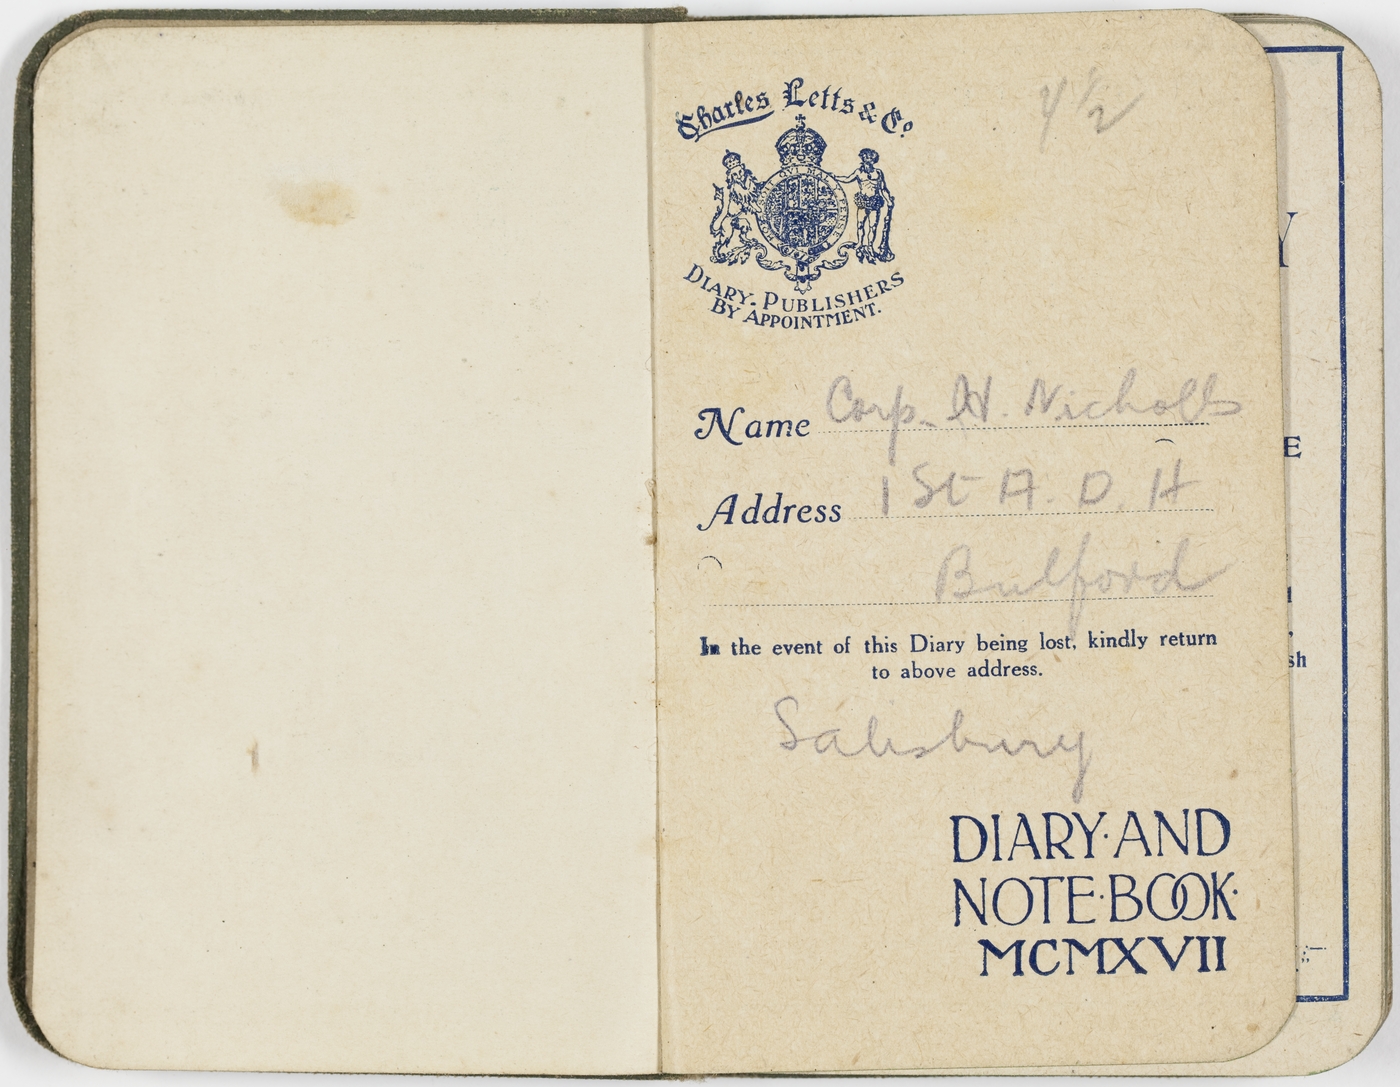 Charles Letts & Co.
4 1/2
HONI SOIT QUI MAL Y PENSE
DIARY. PUBLISHERS
BY APPOINTMENT.
Name Corp. H. Nicholls
Address 1 St A. D. H
Bulford
In the event of this Diary being lost, kindly return
to above address.
Salisbury
DIARY·AND
NOTE·BOOK·
MCMXVII
Y
E
sh